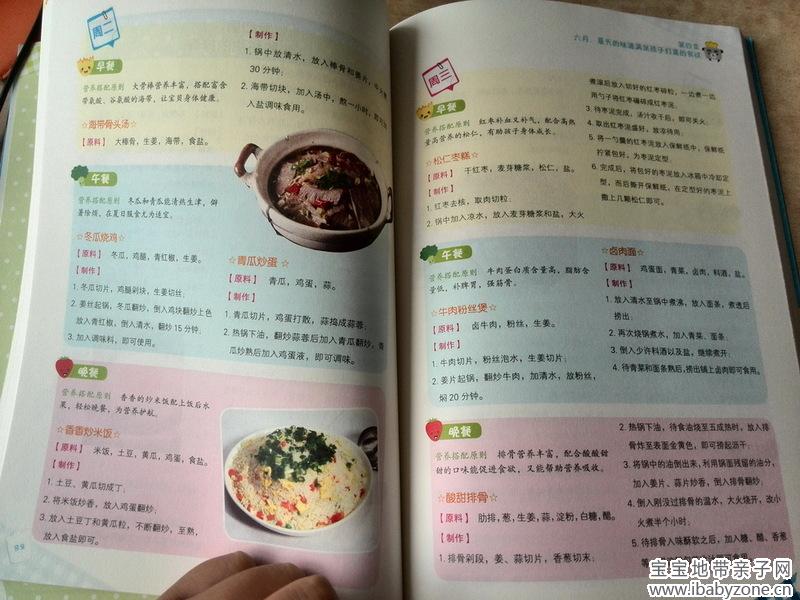 周二
早餐
营养搭配原则 大骨棒营养丰富，搭配富含
带氨酸、谷氨酸的海带，让宝贝身体健康。
☆海带骨头汤☆
【原料】 大棒骨，生姜，海带，食盐。
【制作】
1. 锅中放清水，放入棒骨和姜片，
30分钟；
2. 海带切块，加入汤中，熬一小时，即可
入盐调味食用。
午餐
营养搭配原则 冬瓜和青瓜能清热生津，僻
暑除烦，在夏日服食尤为适宜。
☆冬瓜烧鸡☆
【原料】 冬瓜，鸡腿，青红椒，生姜。
【制作】
1. 冬瓜切片，鸡腿剁块，生姜切丝；
2. 姜丝起锅，冬瓜翻炒，倒入鸡块翻炒上色
放入青红椒，倒入清水，翻炒15分钟；
3. 加入调味料，即可使用。
☆青瓜炒蛋☆
【原料】 青瓜，鸡蛋，蒜。
【制作】
1. 青瓜切片，鸡蛋打散，蒜捣成蒜蓉；
2. 热锅下油，翻炒蒜蓉后加入青瓜翻炒，青
瓜炒熟后加入鸡蛋液，即可调味。
晚餐
营养搭配原则 香香的炒米饭配上饭后水
果，轻松晚餐，为营养护航。
☆香香炒米饭☆
【原料】 米饭，土豆，黄瓜，鸡蛋，食盐。
【制作】
1. 土豆、黄瓜切成丁；
2. 将米饭炒香，放入鸡蛋翻炒；
3. 放入土豆丁和黄瓜粒，不断翻炒，至熟，
放入食盐即可。
第四章
六月，夏天的味道满足孩子们夏的餐谈
周三
早餐
营养搭配原则 红枣补血又补气，配合高热
量高营养的松仁，有助孩子身体成长。
☆松仁枣糕☆
【原料】 干红枣，麦芽糖浆，松仁，盐。
【制作】
1. 红枣去核，取肉切粒；
2. 锅中加入凉水，放入麦芽糖浆和盐，大火
煮滚后放入切好的红枣碎粒，一边煮一边
用勺子将红枣碾碎成红枣泥。
3. 待枣泥完成，汤汁收干后，即可关火。
4. 取出红枣泥盛好，放凉待用；
5. 将一勺羹的红枣泥放入保鲜纸中，保鲜纸
拧紧包好，为枣泥定型。
6. 完成后，将包好的枣泥放入冰箱中冷却定
型，而后撕开保鲜纸，在定型好的枣泥上
撒上几颗松仁即可。
午餐
营养搭配原则 牛肉蛋白质含量高，脂肪含
量低，补脾胃，强筋骨。
☆牛肉粉丝煲☆
【原料】 卤牛肉，粉丝，生姜。
【制作】
1. 牛肉切片，粉丝泡水，生姜切片；
2. 姜片起锅，翻炒牛肉，加清水，放粉丝，
焖20分钟。
☆卤肉面☆
【原料】 鸡蛋面，青菜，卤肉，料酒，盐。
【制作】
1. 放入清水至锅中煮沸，放入面条，煮透后
捞出；
2. 再次烧锅煮水，加入青菜、面条；
3. 倒入少许料酒以及盐，继续煮开；
4. 待青菜和面条熟后，捞出铺上卤肉即可食用。
晚餐
营养搭配原则 排骨营养丰富，配合酸酸甜
甜的口味能促进食欲，又能帮助营养吸收。
☆酸甜排骨☆
【原料】 肋排，葱，生姜，蒜，淀粉，白糖，醋。
【制作】
1. 排骨剁段，姜、蒜切片，香葱切末；
2. 热锅下油，待食油烧至五成热时，放入排
骨炸至表面金黄色，即可捞起沥干；
3. 将锅中的油倒出来，利用锅面残留的油分，
加入姜片、蒜片炒香，倒入排骨翻炒；
4. 倒入刚没过排骨的温水，大火烧开，改小
火煮半个小时；
5. 待排骨入味酥软之后，加入糖、醋、香葱
宝宝地带亲子网
www.ibabyzone.cn